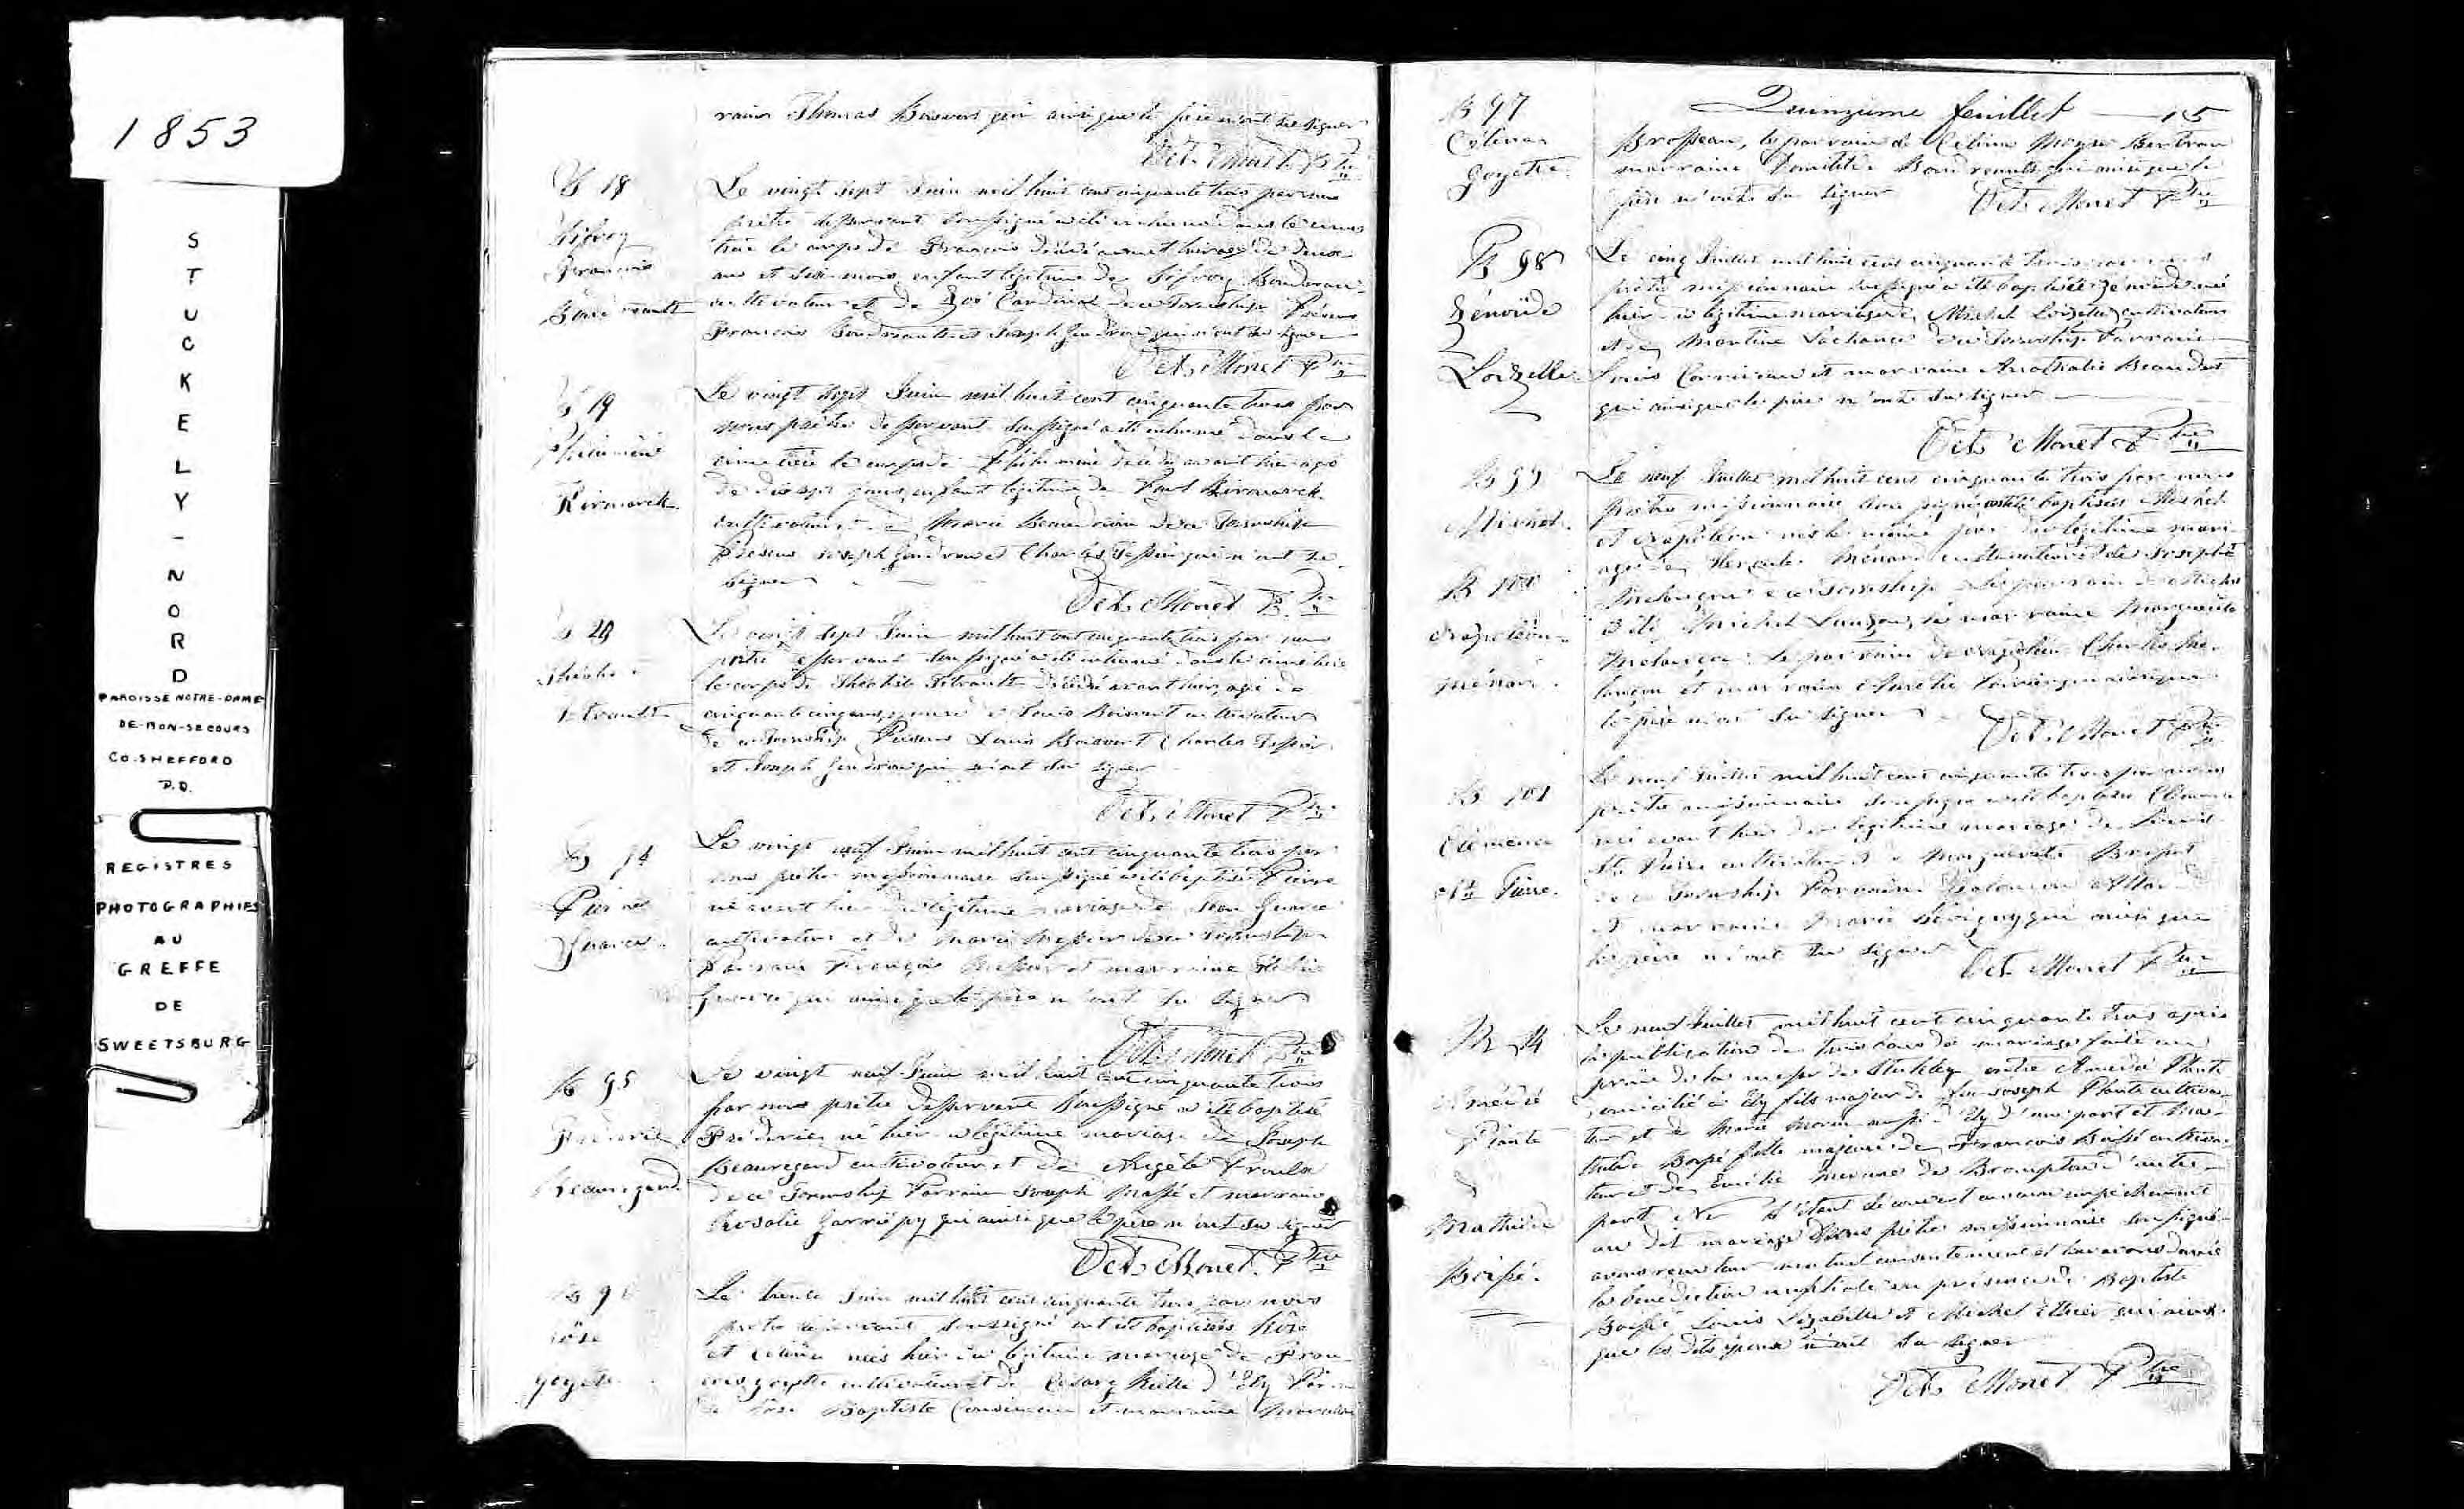 1853
STUCKELY-NORD
PAROISSE NOTRE-DAME
DE-BON-SECOURS
CO. SHEFFORD
P.Q.
REGISTRES
PHOTOGRAPHIES
AU
GREFFE
DE
SWEETSBURG
raine Thomas Boisvert qui ainsi que le père n'ont su signer
Oct. Monet Ptre
S 18
Sifroy
François
Boudreault
Le vingt sept Juin mil huit cent cinquante trois par nous
prêtre desservant soussigné a été inhumé dans le cime
tière le corps de François décédé avant hier agé de deux
ans et six mois enfant légitime de Sifroy Boudreau
cultivateur et de Zoé Cardinal de ce Township Présens
François Boudreault et Joseph Gendron qui n'ont su signer
Oct. Monet Ptre
S 19
Philumène
Kirouack
Le vingt sept Juin mil huit cent cinquante trois par
nous prêtre desservant soussigné a été inhumé dans le
cimetière le corps de Philumène décédé avant hier agé
de dix sept jours enfant légitime de Paul
cultivateur et de Marie de ce Township
Présens Joseph Gendron et Charles Tessier qui n'ont su
signer
Oct. Monet Ptre
S 20
Tetreault
Le vingt sept Juin mil huit cent cinquante trois par nous
prêtre desservant soussigné a été inhumé dans le cimetière
le corps de Tetreault décédé avant hier, agé de
cinquante cinq ans, Louis Boisvert cultivateur
de ce Township Présens Louis Boisvert Charles Tessier
et Joseph Gendron qui n'ont su signer
Oct. Monet Ptre
B 94
Pierre
Le vingt neuf Juin mil huit cent cinquante trois par
nous prêtre missionnaire soussigné a été baptisé Pierre
né avant hier du légitime mariage de Jean
cultivateur et de Marie de ce Township
Parrain François et marraine
qui ainsi que le père n'ont su signer
Oct. Monet Ptre
B 95
Fréderic
Beauregard
Le vingt neuf Juin mil huit cent cinquante trois
par nous prêtre desservant soussigné a été baptisé
Fréderic né hier du légitime mariage de Joseph
Beauregard cultivateur et de Angèle Proulx
de ce Township Parrain Joseph Massé et marraine
Rosalie Garriépy qui ainsi que le père n'ont su signer
Oct. Monet Ptre
B 96
Rose
Goyette
Le trente Juin mil huit cent cinquante trois par nous
prêtre desservant soussigné ont été baptisées Rose
et Célina nées hier du légitime mariage de Fran
çois Goyette cultivateur et de d'Ely
de Rose Baptiste et marraine
B 97
Célina
Goyette
Quinzième feuillet 15
Brosseau, le parrain de Célina Moyse Bertrand
marraine Domitilde Boudreault qui ainsi que le
père n'ont su signer Oct. Monet Ptre
B 98
Zénoïde
Loizelle
Le cinq Juillet mil huit cent cinquante trois par nous
prêtre missionnaire soussigné a été baptisée Zénoïde née
hier du légitime mariage de Michel Loizelle cultivateur
et de Martine Lachance de ce Township Parrain
Louis Corriveau et marraine Anathalie Beaudet
qui ainsi que le père n'ont su signer
Oct. Monet Ptre
B 99
Michel
B 100
Napoléon
Ménard
Le neuf Juillet mil huit cent cinquante trois par nous
prêtre missionnaire soussigné ont été baptisés Michel
et Napoléon nés le même jour du légitime mari
age de Ménard cultivateur et de Josephte
Melançon de ce Township le parrain de Michel
a été Michel la marraine Marguerite
Melançon le parrain de Napoléon Charles Me
lançon et marraine Aurélie qui ainsi que
le père n'ont su signer
Oct. Monet Ptre
B 101
Clémence
St. Pierre
Le neuf Juillet mil huit cent cinquante trois par nous
prêtre missionnaire soussigné a été baptisée Clémence
née avant hier du légitime mariage de
St. Pierre cultivateur et de Marguerite
de ce Township Parrain Salomon
et marraine Marie Sévigny qui ainsi que
le père n'ont su signer
Oct. Monet Ptre
M 14
Amédé
Plante
&
Mathilde
Boissé
Le neuf Juillet mil huit cent cinquante trois après
la publication de trois bans de mariage faite au
prône de la messe de Stukely entre Amédé Plante
domicilié à Ely fils majeur de feu Joseph Plante cultiva
teur et de Marie Morin aussi d'Ely d'une part et Ma
thilde Boissé fille majeure de François Boissé cultiva
teur et de Emilie de Brompton d'autre
part Ne s'étant découvert aucun empêchement
au dit mariage Nous prêtre missionnaire soussigné
avons reçu leur mutuel consentement et leur avons donné
la bénédiction nuptiale en présence de Baptiste
Boissé Louis et Michel qui ainsi
que les dits époux n'ont su signer
Oct. Monet Ptre